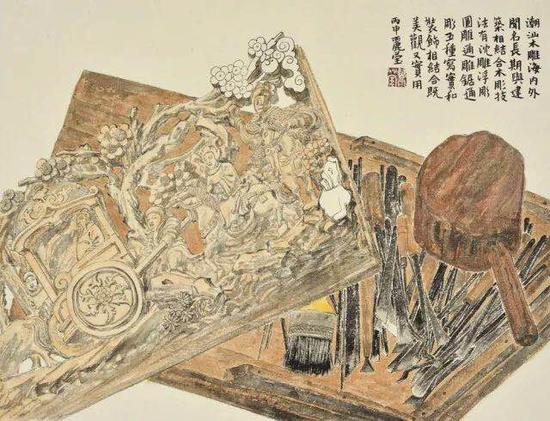 潮汕木雕海内外
聞名長期與建
築相結合木彫技
法有沈雕浮彫
圓雕通雕鋸通
彫五種寫實和
裝飾相結合既
美觀又實用
丙申麗堂